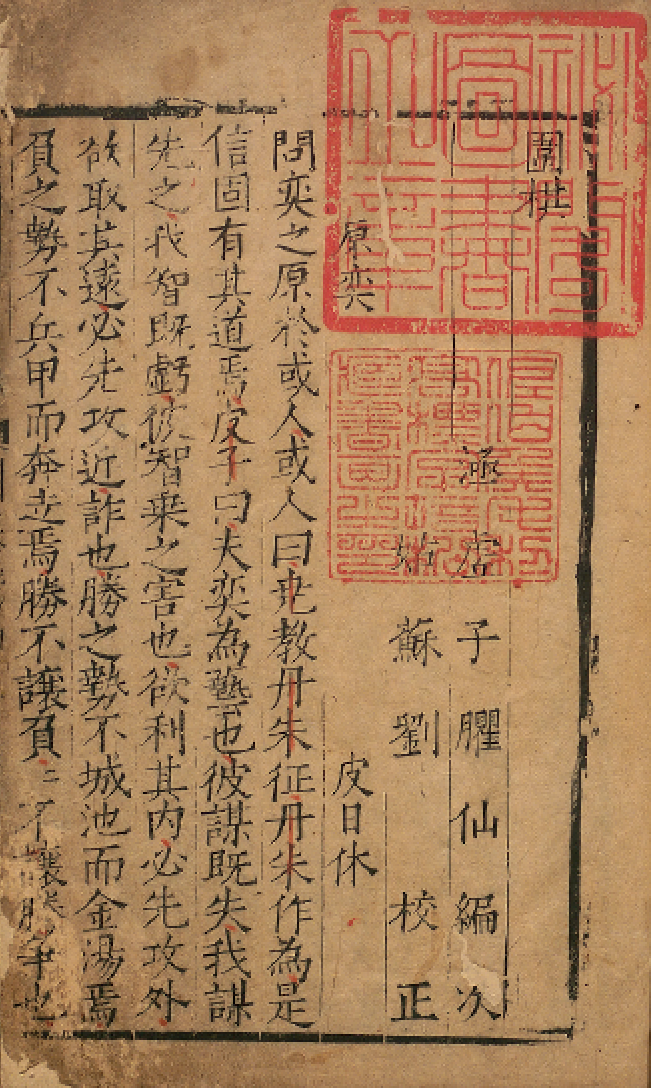 圍棋
涵虛子臞仙編次
姑蘇劉校正
原奕
皮日休
問奕之原於或人或人曰堯教丹朱征丹朱作為是
信固有其道焉皮子曰夫奕為藝也彼謀既失我謀
先之我智既虧彼智乘之害也欲利其内必先攻外
欲取其遠必先攻近詐也勝之勢不城池而金湯焉
負之勢不兵甲而奔走焉勝不讓負〻不讓勝争也